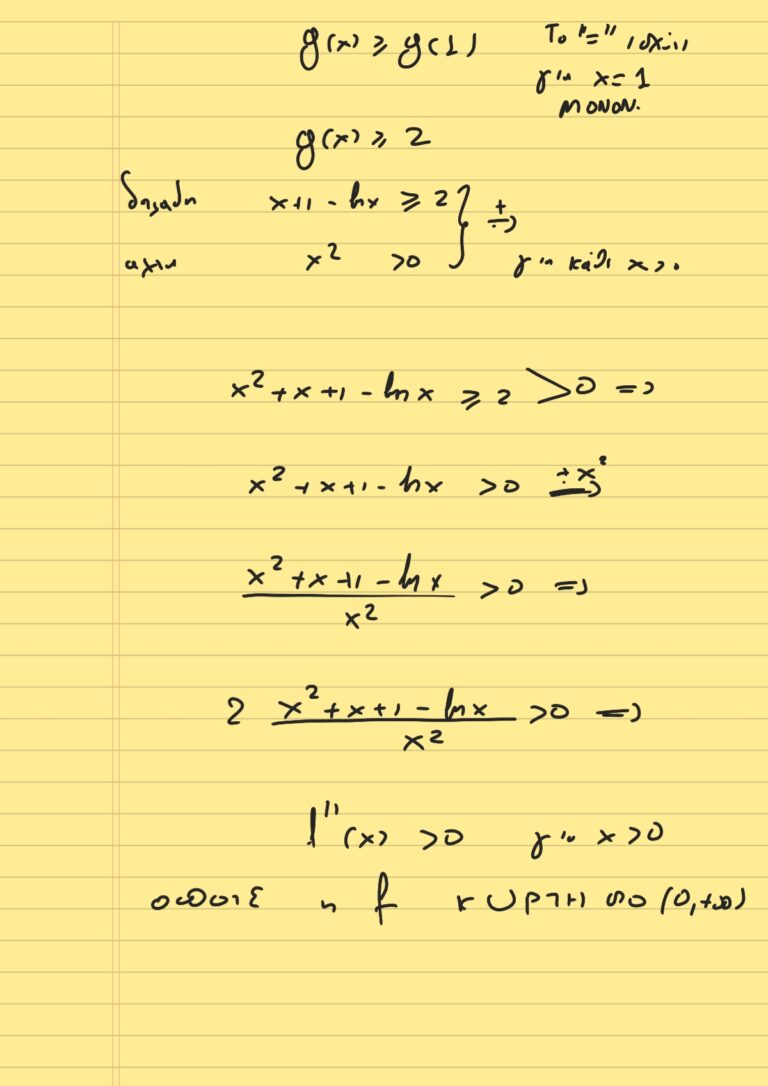 g(x) ≥ g(1) Το "=" ισχύει
για x = 1
μονον.
g(x) ≥ 2
δηλαδή x+1 - lnx ≥ 2 } +⇒
x² > 0 για κάθε x>0
x² + x + 1 - ln x ≥ 2 > 0 =>
x² + x + 1 - lnx > 0 ÷x² ⇒
(x² + x + 1 - ln x)/x² > 0 =>
2 (x² + x + 1 - ln x)/x² > 0 =>
f''(x) > 0 για x > 0
οποτε η f κυρτη στο (0,+∞)